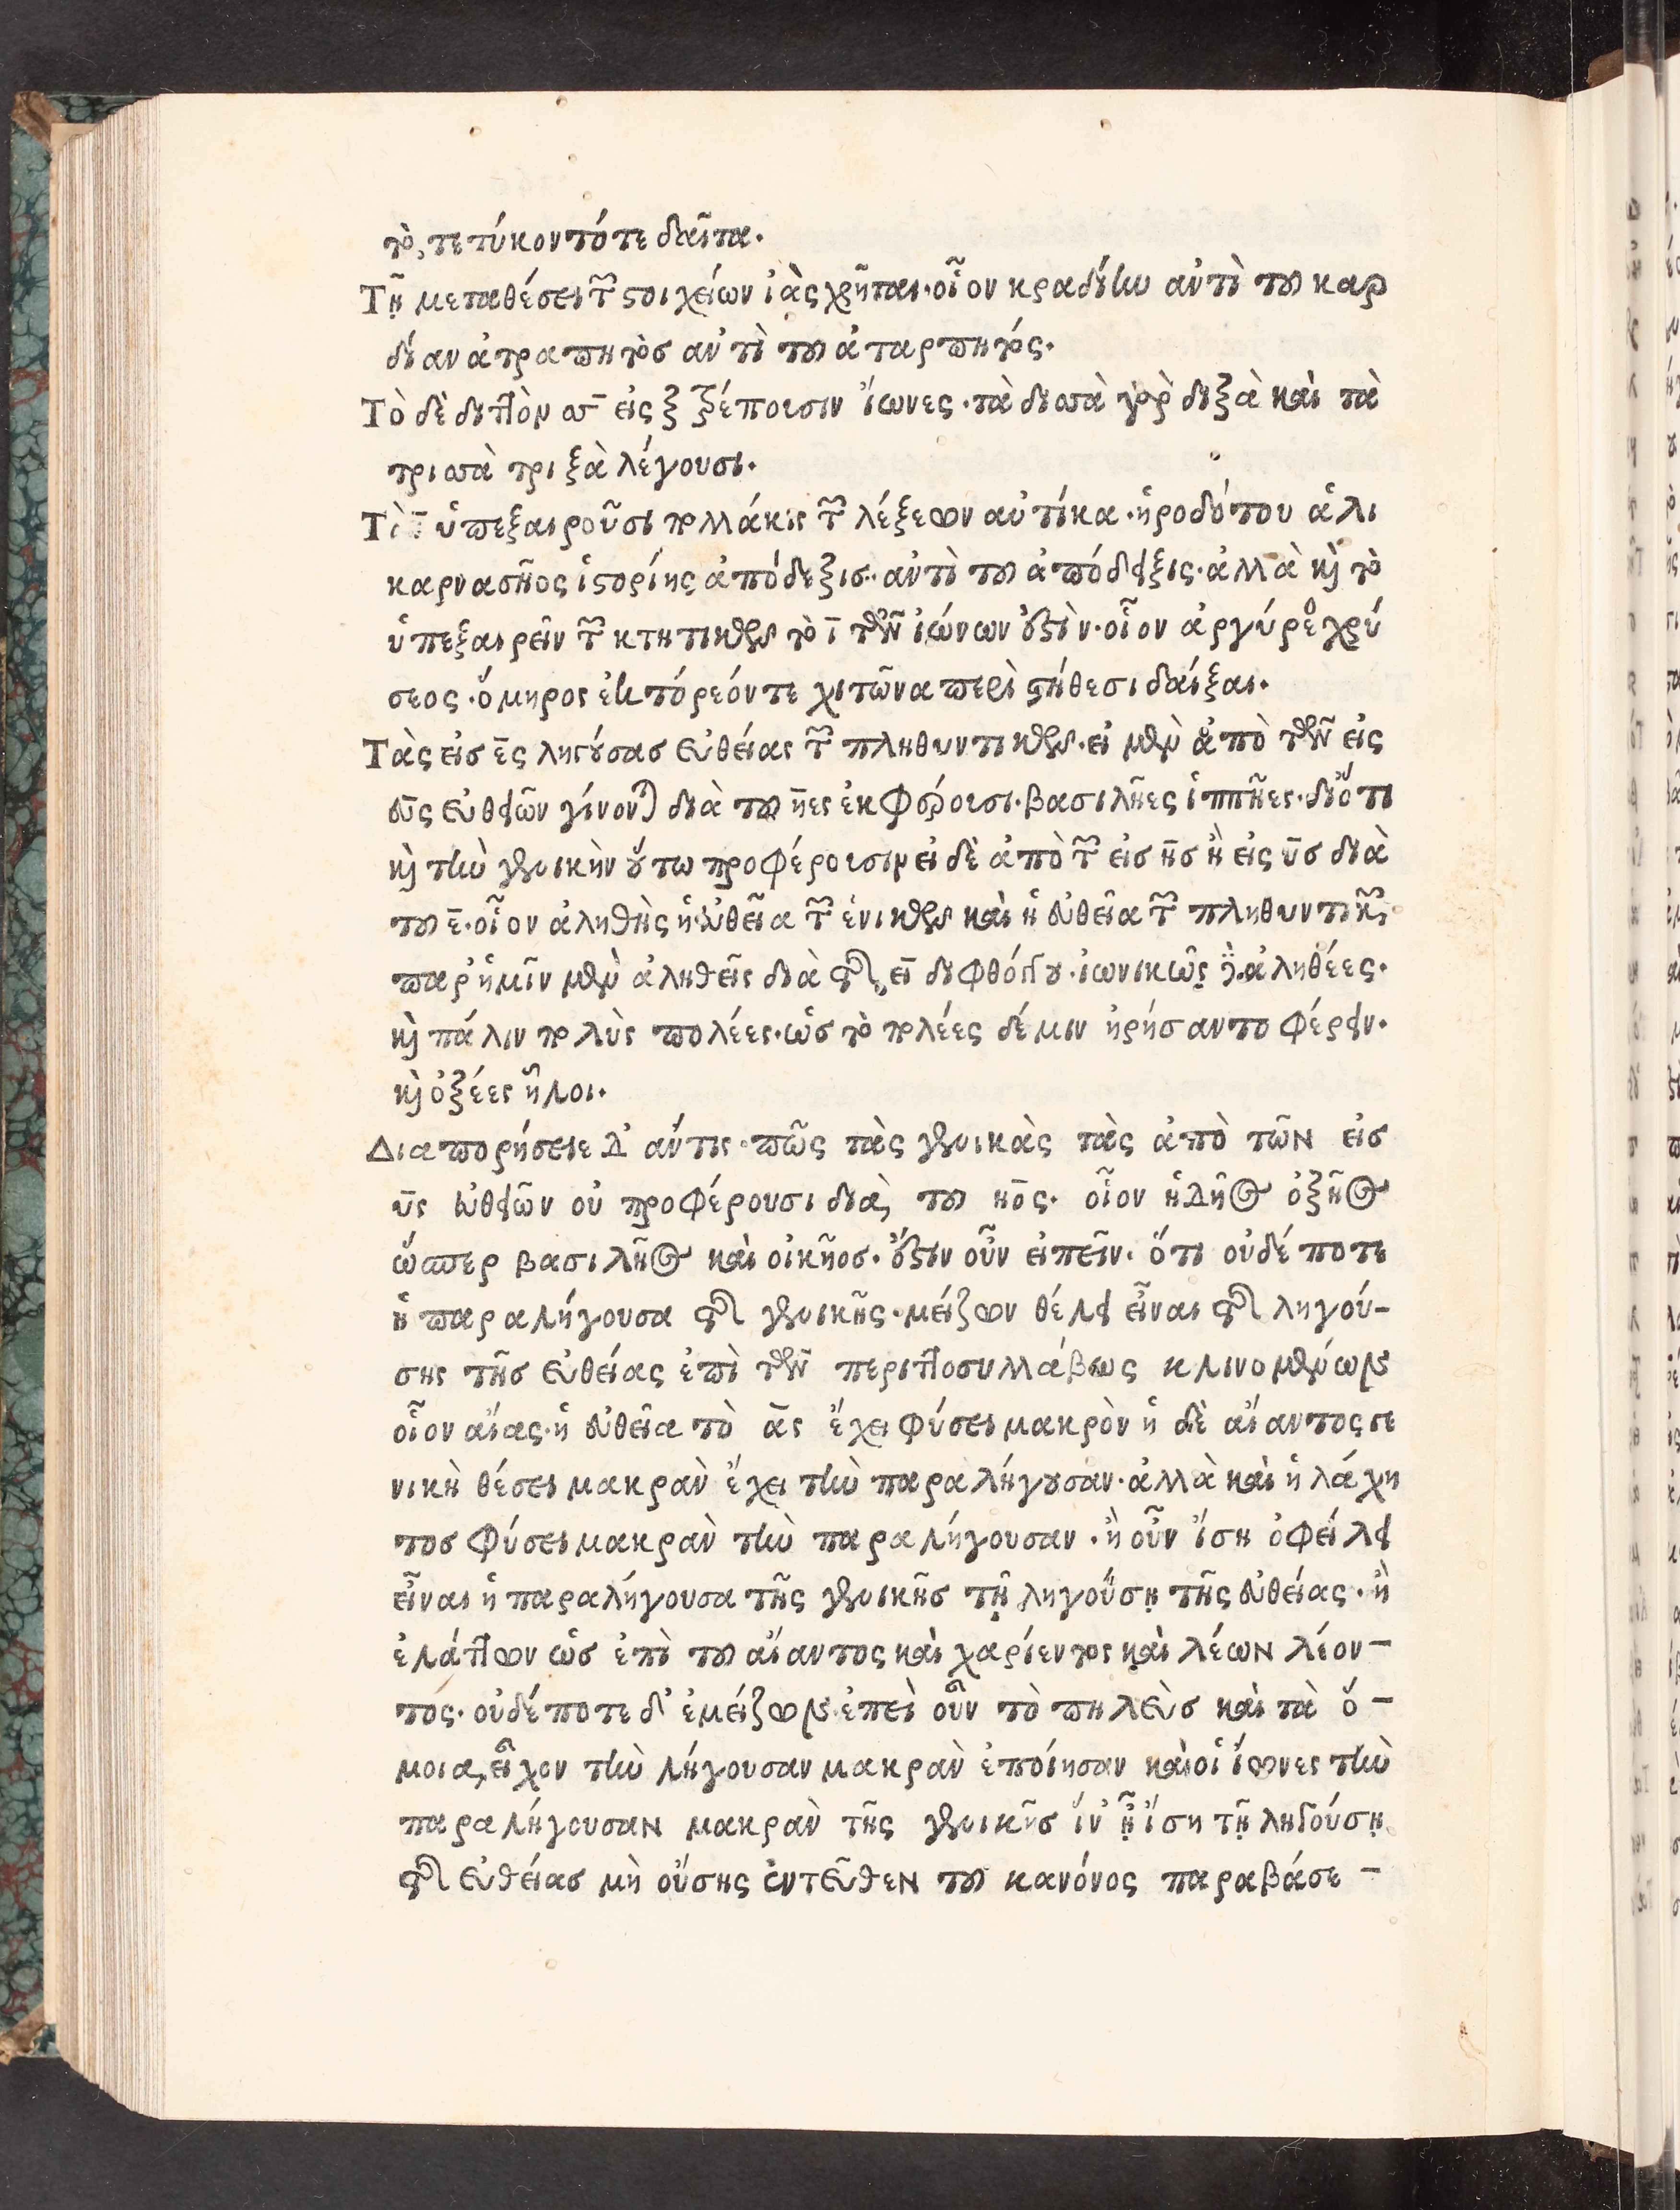 τὸ, τετύκοντό τε δαῖτα.
Τῇ μεταθέσει τῶν στοιχείων ἰὰς χρῆται· οἷον κραδίην αὐτὶ τοῦ καρ
δίαν ἀτραπητὸσ αὐτὶ τοῦ ἀταρπητός.
Τὸ δὲ διπλὸν σσ εἰς ξ τρέπουσιν ἴωνες· τὰ δισσὰ γὰρ διξὰ καὶ τὰ
τρισσὰ τριξὰ λέγουσι.
Τὸ ῑ ὑπεξαιροῦσι πολλάκις τῶν λέξεων αὐτίκα· ἡροδότου ἁλι
καρνασῆος ἱστορίης ἀπόδεξισ· αὐτὶ τοῦ ἀπόδειξις· ἀλλὰ καὶ τὸ
ὑπεξαιρεῖν τῶν κτητικῶν τὸ ῑ τῶν ἰώνων ἐστὶν· οἷον ἀργύρεος χρύ
σεος· ὅμηρος ἑκτόρεόν τε χιτῶνα περὶ στήθεσι δαίξαι.
Τὰς εἰσ ε̄ς ληγούσασ εὐθείας τῶν πληθυντικῶν· εἰ μὲν ἀπὸ τῶν εἰς
εῡς εὐθειῶν γίνονται διὰ τοῦ η̄ες ἐκφέρουσι· βασιλῆες ἱππῆες· διότι
καὶ τὴν γενικὴν οὕτω προφέρουσιν εἰ δὲ ἀπὸ τῶν εἰσ η̄σ ἢ εἰς ῡσ διὰ
τοῦ ε̄· οἷον ἀληθὴς ἡ εὐθεῖα τῶν ἑνικῶν καὶ ἡ εὐθεῖα τῶν πληθυντικῶν
παρ' ἡμῖν μὲν ἀληθεῖς διὰ τῆς ει διφθόγγου· ἰωνικῶς δὲ ἀληθέες.
καὶ πάλιν πολὺς πολέες· ὡσ τὸ πολέες δέ μιν ἠρήσαντο φέρειν.
καὶ ὀξέες ἧλοι.
Διαπορήσειε δ' αύτις πῶς τὰς γενικὰς τὰς ἀπὸ τῶν εἰσ
ῡς εὐθειῶν οὐ προφέρουσι διὰ, τοῦ ηο̄ς. οἷον ἡδῆος ὀξῆος
ὥσπερ βασιλῆος καὶ οἰκῆοσ. ἔστιν οὖν εἰπεῖν. ὅτι οὐδέποτε
ἡ παραλήγουσα τῆς γενικῆς· μείζων θέλει εἶναι τῆς ληγού-
σης τῆσ εὐθείας ἐπὶ τῶν περιττοσυλλάβως κλινομένων
οἷον αἴας· ἡ εὐθεῖα τὸ ᾱς ἔχει φύσει μακρὸν ἡ δὲ αἴαντος γε
νικὴ θέσει μακρὰν ἔχει τὴν παραλήγουσαν· ἀλλὰ καὶ ἡ λάχη
τοσ φύσει μακρὰν τὴν παραλήγουσαν· ἢ οὖν ἴση ὀφείλει
εἶναι ἡ παραλήγουσα τῆς γενικῆσ τῇ ληγούσῃ τῆς εὐθείας· ἢ
ἐλάττων ὡσ ἐπὶ τοῦ αἴαντος καὶ χαρίεντος καὶ λέων λέον-
τος· οὐδέποτε δ' ἐμείζων· ἐπεὶ οὖν τὸ πηλεὺσ καὶ τὰ ὅ-
μοια, εἶχον τὴν λήγουσαν μακρὰν ἐποίησαν καὶ οἱ ἴωνες τὴν
παραλήγουσαν μακρὰν τῆς γενικῆσ ἵν' ᾖ ἴση τῇ ληγούσῃ
τῆς εὐθείασ μὴ οὔσης ἐντεῦθεν τοῦ κανόνος παραβάσε-